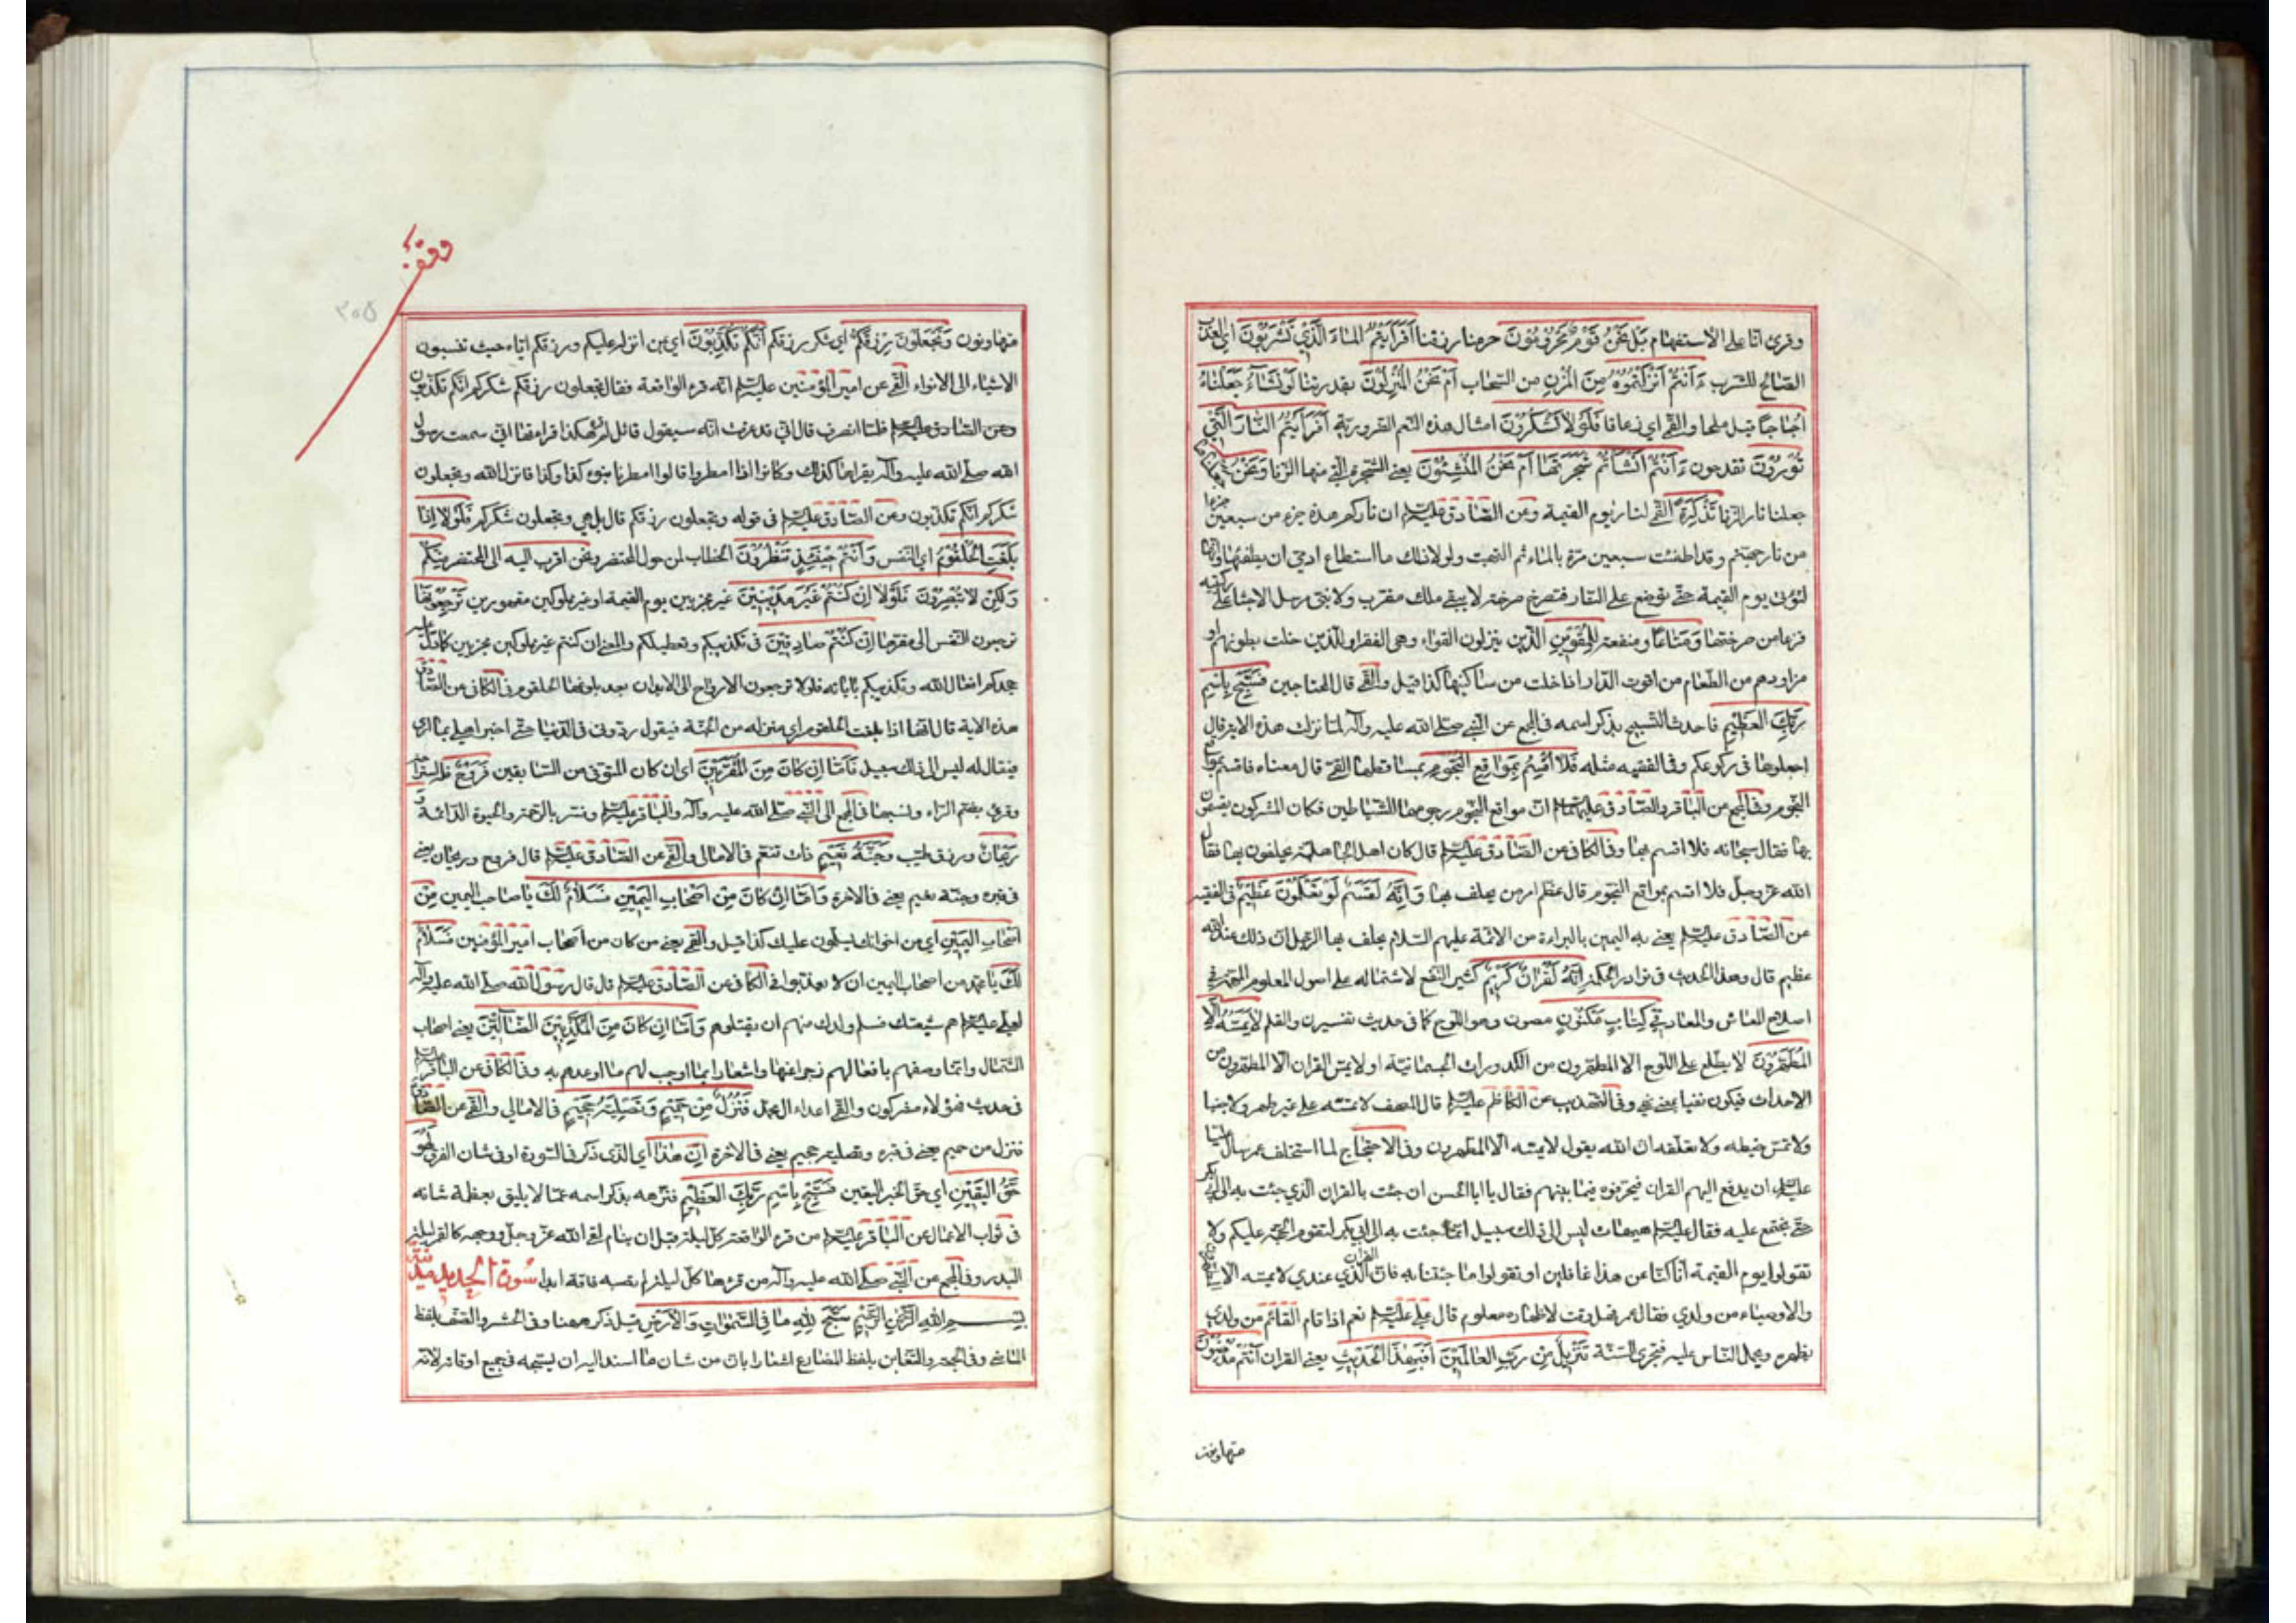 وقرئ ائنا على الاستفهام بَلْ نَحْنُ قَوْمٌ مَحْرُومُونَ حرمنا رزقنا أَفَرَأَيْتُمُ المٰاءَ الَّذِي تَشْرَبُونَ اي العذب
الصالح للشرب ءَاَنْتُمْ اَنْزَلْتُمُوهُ مِنَ الْمُزْنِ من السحاب اَمْ نَحْنُ الْمُنْزِلُونَ بقدرتنا لَوْ نَشٰآءُ جَعَلْنٰاهُ
اُجٰاجًا قيل ملحا والقمي اي زعاقا فَلَوْلا تَشْكُرُونَ امثال هذه النعم الضرورية اَفَرَأَيْتُمُ النّٰارَ الَّتِي
تُورُونَ تقدحون ءَاَنْتُمْ اَنْشَأْتُمْ شَجَرَتَهٰا اَمْ نَحْنُ الْمُنْشِئُونَ يعني الشجرة التي منها الزناد نَحْنُ جَعَلْنٰاهٰا
جعلنا نار الزناد تَذْكِرَةً القمي لنار يوم القيمة وعن الصٰادق عليه السلم ان ناركم هذه جزء من سبعين جزءا
من نار جهنم وقد اطفئت سبعين مرة بالماء ثم التهبت ولولا ذلك ما استطاع ادمي ان يطفئها وانها
لتؤتى يوم القيمة حتى توضع على النار فتصرخ صرخة لا يبقى ملك مقرب ولا نبي مرسل الا جثا على ركبتيه
فزعا من صرختها وَمَتٰاعًا ومنفعة لِلْمُقْوِينَ الذين ينزلون القواء وهي القفر او للذين خلت بطونهم او
مزاودهم من الطعام من اقوت الدار اذا خلت من سٰاكنيها كذا قيل والقمي قال المحتاجين فَسَبِّحْ بِاسْمِ
رَبِّكَ الْعَظِيمِ فاحدث التسبيح بذكر اسمه في المجمع عن النبي صلى الله عليه وآله لما نزلت هذه الاية قال
اجعلوها في ركوعكم وفي الفقيه مثله فَلا اُقْسِمُ بِمَوٰاقِعِ النُّجُومِ بمساقطها القمي قال معناه فاقسم بمواقع
النجوم وفي المجمع عن الباقر والصادق عليهما السلم انّ مواقع النجوم رجومها للشياطين فكان المشركون يقسمون
بها فقال سبحانه فلا اقسم بها وفي الكافي عن الصٰادق عليه السلم قال كان اهل الجاهلية يحلفون بها فقال
الله عز وجل فلا اقسم بمواقع النجوم قال عظم امر من يحلف بها وَاِنَّهُ لَقَسَمٌ لَوْ تَعْلَمُونَ عَظِيمٌ في الفقيه
عن الصٰادق عليه السلم يعني به اليمين بالبراءة من الائمة عليهم السلام يحلف بها الرجل ان ذلك عند الله
عظيم قال وهذا الحديث في نوادر الحكمة اِنَّهُ لَقُرْاٰنٌ كَرِيمٌ كثير النفع لاشتماله على اصول العلوم المهمة في
اصلاح المعاش والمعاد فِي كِتٰابٍ مَكْنُونٍ مصون وهو اللوح كما في حديث تفسير ن والقلم لا يَمَسُّهُ اِلَّا
الْمُطَهَّرُونَ لا يطلع على اللوح الا المطهرون من الكدورات الجسمانية او لا يمس القران الا المطهرون من
الاحداث فيكون نفيا بمعنى نهي وفي التهذيب عن الكاظم عليه السلم قال المصحف لا تمسه على غير طهر ولا جنبا
ولا تمس خيطه ولا تعلقه ان الله يقول لا يمسه الا المطهرون وفي الاحتجاج لما استخلف عمر سال عليّا
عليه السلم ان يدفع اليهم القران فيحرفوه فيما بينهم فقال يا ابا الحسن ان جئت بالقران الذي جئت به الى ابي بكر
حتى نجتمع عليه فقال عليه السلم هيهات ليس الى ذلك سبيل انما جئت به الى ابي بكر لتقوم الحجة عليكم ولا
تقولوا يوم القيمة انا كنا عن هذا غافلين او تقولوا ما جئتنا به فان القران الذي عندي لا يمسه الا المطهرون
والاوصياء من ولدي فقال عمر فهل وقت لاظهاره معلوم قال علي عليه السلم نعم اذا قام القائم من ولدي
يظهره ويحمل الناس عليه فتجرى السنة تَنْزِيلٌ مِنْ رَبِّ الْعٰالَمِينَ اَفَبِهٰذَا الْحَدِيثِ يعني القران اَنْتُمْ مُدْهِنُونَ
متهاونون
وقف
٣٠٥
متهاونون وَتَجْعَلُونَ رِزْقَكُمْ اي شكر رزقكم اَنَّكُمْ تُكَذِّبُونَ اي بمن انزله عليكم ورزقكم اياه حيث تنسبون
الاشياء الى الانواء القمي عن امير المؤمنين عليه السلم انه قرء الواقعة فقال تجعلون رزقكم شكركم انكم تكذبون
وعن الصٰادق عليه السلم فلما انصرف قال اني قد عرفت انه سيقول قائل لم هكذا قراءتها اني سمعت رسول
الله صلى الله عليه وآله يقراها كذلك وكانوا اذا امطروا قالوا امطرنا بنوء كذا وكذا فانزل الله وتجعلون
شكركم انكم تكذبون وعن الصٰادق عليه السلم في قوله وتجعلون رزقكم قال بل هي وتجعلون شكركم فَلَوْلا اِذٰا
بَلَغَتِ الْحُلْقُومَ اي النفس وَاَنْتُمْ حِينَئِذٍ تَنْظُرُونَ الخطاب لمن حول المحتضر ونحن اقرب اليه الى المحتضر مِنْكُمْ
وَلٰكِنْ لا تُبْصِرُونَ فَلَوْلا اِنْ كُنْتُمْ غَيْرَ مَدِينِينَ غير مجزيين يوم القيمة او غير مملوكين مقهورين تَرْجِعُونَهٰا
ترجعون النفس الى مقرها اِنْ كُنْتُمْ صٰادِقِينَ في تكذيبكم وتعطيلكم والمعنى ان كنتم غير مملوكين مجزيين كما دل عليه
جحدكم افعال الله وتكذيبكم باياته فلولا ترجعون الارواح الى الابدان بعد بلوغها الحلقوم في الكافي عن الصٰادق
هذه الاية قال انها اذا بلغت الحلقوم اري منزله من الجنة فيقول ردوني الى الدنيا حتى اخبر اهلي بما ارى
فيقال له ليس الى ذلك سبيل فَاَمّٰا اِنْ كٰانَ مِنَ الْمُقَرَّبِينَ اي ان كان المتوفى من السٰابقين فَرَوْحٌ فله استراحة
وقرئ بضم الراء ونسبها في المجمع الى النبي صلى الله عليه وآله والباقر عليه السلم وفسر بالرحمة والحيوة الدائمة وَ
رَيْحٰانٌ ورزق طيب وَجَنَّةُ نَعِيمٍ ذات تنعم في الامالي والقمي عن الصٰادق عليه السلم قال فروح وريحان يعني
في قبره وجنة نعيم يعني في الاخرة وَاَمّٰا اِنْ كٰانَ مِنْ اَصْحٰابِ الْيَمِينِ فَسَلٰامٌ لَكَ يا صاحب اليمين مِنْ
اَصْحٰابِ الْيَمِينِ اي من اخوانك يسلمون عليك كذا قيل والقمي يعني من كان من اصحاب امير المؤمنين فَسَلٰامٌ
لَكَ يا محمد من اصحاب اليمين ان لا يعذبوا في الكافي عن الصٰادق عليه السلم قال قال رسول الله صلى الله عليه وآله
لعلي عليه السلم هم شيعتك فسلم ولدك منهم ان يقتلوهم وَاَمّٰا اِنْ كٰانَ مِنَ الْمُكَذِّبِينَ الضّٰالِّينَ يعني اصحاب
الشمال وانما وصفهم بافعالهم زجرا عنها واشعارا بما اوجب لهم ما اوعدهم به وفي الكافي عن الباقر عليه السلم
في حديث فهؤلاء مشركون والقمي اعداء ال محمد فَنُزُلٌ مِنْ حَمِيمٍ وَتَصْلِيَةُ جَحِيمٍ في الامالي والقمي عن الصٰادق
فنزل من حميم يعني في قبره وتصلية جحيم يعني في الاخرة اِنَّ هٰذٰا اي الذي ذكر في السورة او في شان الفرق لَهُوَ
حَقُّ الْيَقِينِ اي حق الخبر اليقين فَسَبِّحْ بِاسْمِ رَبِّكَ الْعَظِيمِ فنزهه بذكر اسمه عمّا لا يليق بعظمة شانه
في ثواب الاعمال عن الباقر عليه السلم من قرء الواقعة كل ليلة قبل ان ينام لقي الله عز وجل ووجهه كالقمر ليلة
البدر وفي المجمع عن النبي صلى الله عليه وآله من قرءها كل ليلة لم تصبه فاقة ابدا سورة الحديد مدنية
بِسْمِ اللهِ الرَّحْمٰنِ الرَّحِيمِ سَبَّحَ لِلّٰهِ مٰا فِي السَّمٰوٰاتِ وَالْاَرْضِ قيل ذكر ههنا وفي الحشر والصف بلفظ
الماضي وفي الجمعة والتغابن بلفظ المضارع اشعارا بان من شان ما اسند اليه ان يسبحه في جميع اوقاته لانه